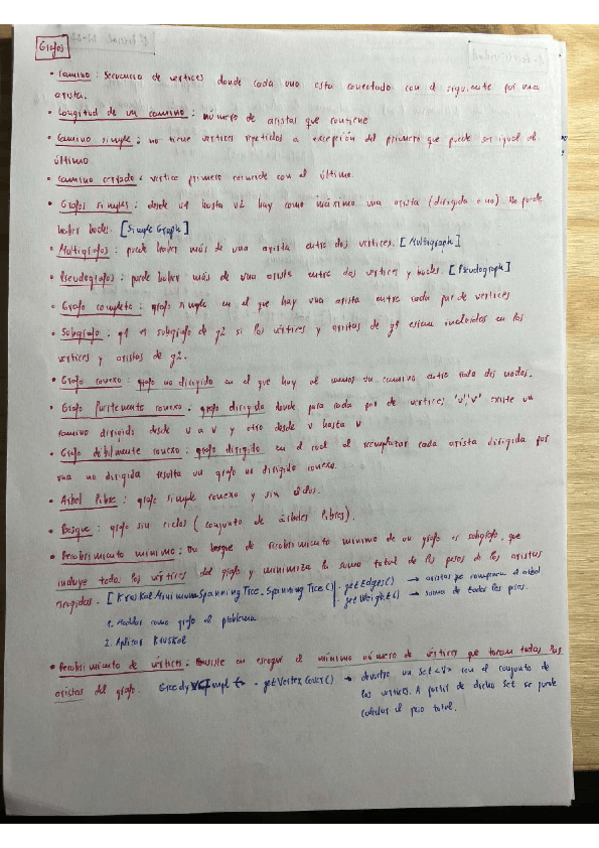 Grafos
• Camino : Secuencia de vértices donde cada uno está conectado con el siguiente por una
arista.
• Longitud de un camino : número de aristas que contiene
• Camino simple : no tiene vértices repetidos a excepción del primero que puede ser igual al
último
• Camino cerrado : vértice primero coincide con el último.
• Grafos simples : desde v1 hasta v2 hay como máximo una arista (dirigida o no). No puede
haber bucles. [Simple Graph]
• Multigrafos : puede haber más de una arista entre dos vértices. [Multigraph]
• Pseudografos : puede haber más de una arista entre dos vértices y bucles. [Pseudograph]
• Grafo completo : grafo simple en el que hay una arista entre cada par de vértices
• Subgrafo : g1 es subgrafo de g2 si los vértices y aristas de g1 están incluidos en los
vértices y aristas de g2.
• Grafo conexo : grafo no dirigido en el que hay al menos un camino entre cada dos nodos.
• Grafo fuertemente conexo : grafo dirigido donde para cada par de vértices 'u','v' existe un
camino dirigido desde u a v y otro desde v hasta u
• Grafo débilmente conexo : grafo dirigido en el cual al reemplazar cada arista dirigida por
una no dirigida resulta un grafo no dirigido conexo.
• Árbol libre : grafo simple conexo y sin ciclos.
• Bosque : grafo sin ciclos (conjunto de árboles libres).
• Recubrimiento mínimo : Un bosque de recubrimiento mínimo de un grafo es subgrafo, que
incluye todos los vértices del grafo y minimiza la suma total de los pesos de las aristas
escogidas. [KruskalMinimumSpanningTree.SpanningTree() - getEdges() → aristas que componen el árbol
- getWeight() → suma de todos los pesos.
1. Modelar como grafo el problema
2. Aplicar Kruskal
• Recubrimiento de vértices : Consiste en escoger el mínimo número de vértices que tocan todas las
aristas del grafo. GreedyVCImpl - getVertexCover() → devuelve un Set<V> con el conjunto de
los vértices. A partir de dicho Set se puede
calcular el peso total.